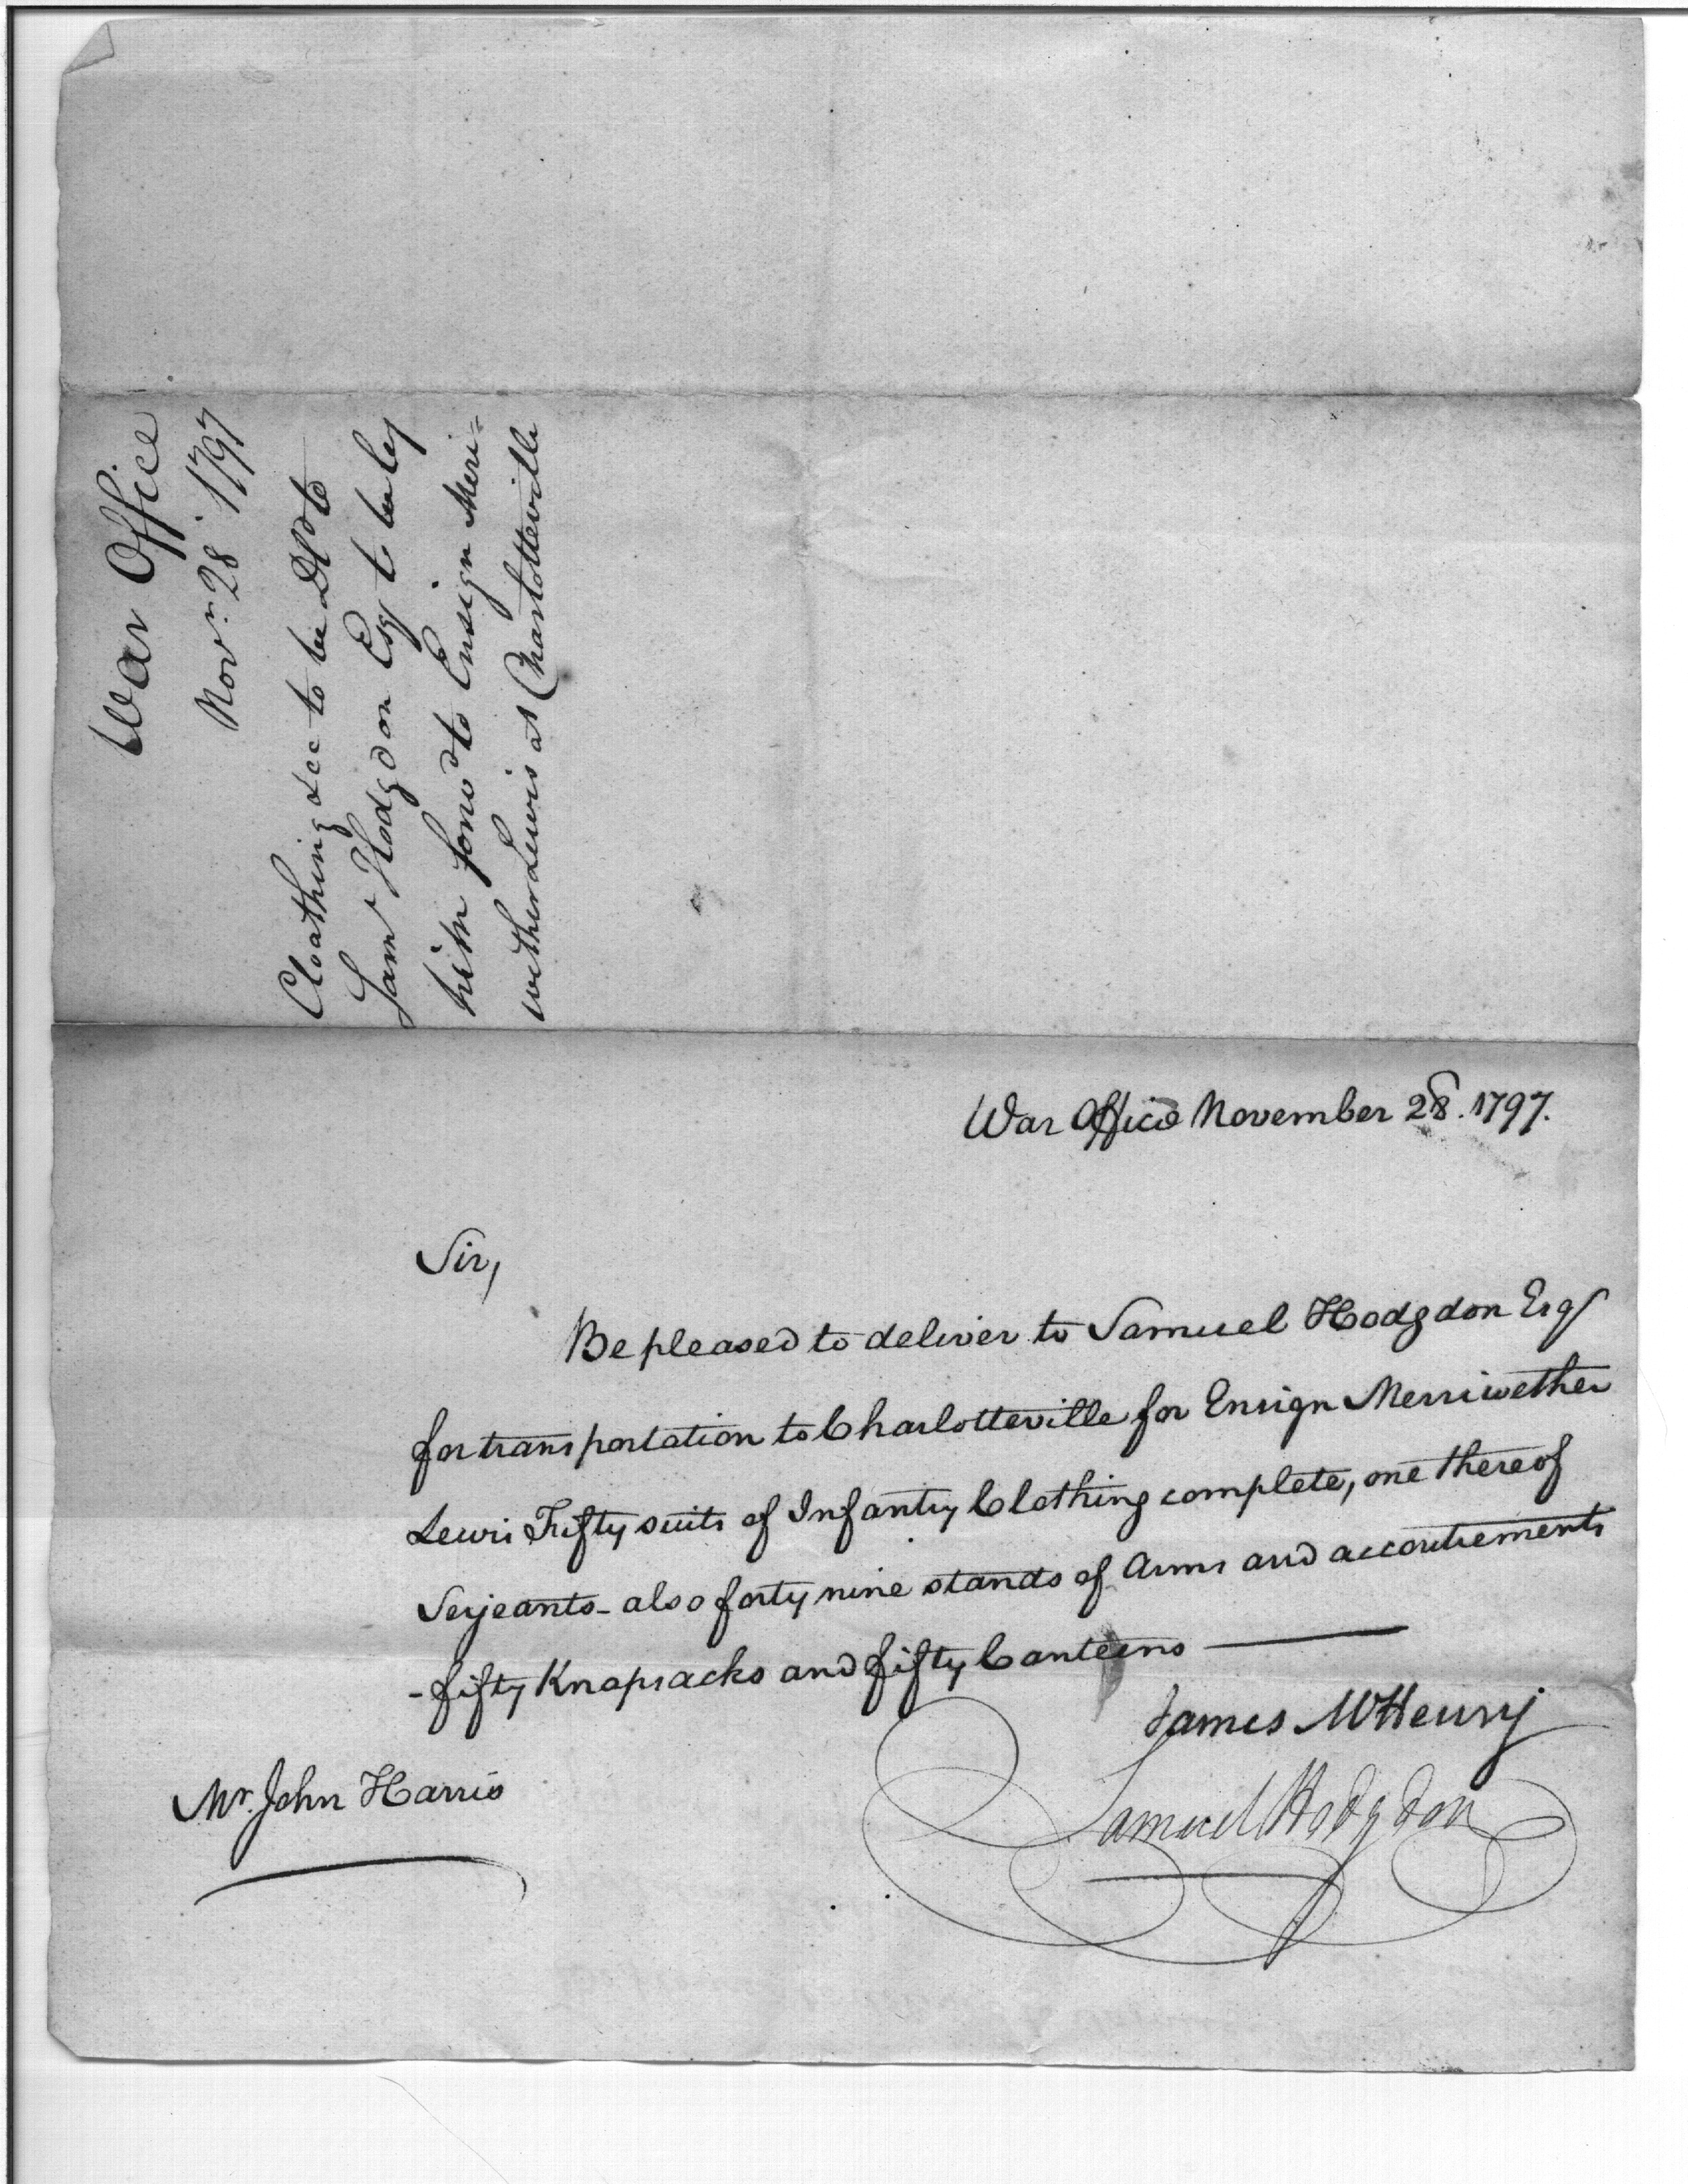 War Office
Novr. 28 1797
Cloathing &cc to be Dld to
Saml Hodgdon Esq to be by
him forwd to Ensign Meri=
wether Lewis at Charlotteville
War Office November 28. 1797.
Sir,
Be pleased to deliver to Samuel Hodgdon Esqr
for transportation to Charlotteville for Ensign Merriwether
Lewis Fifty suits of Infantry Clothing complete, one thereof
Serjeants - also forty nine stands of Arms and accoutrements
- fifty Knapsacks and fifty Canteens
James McHenry
Samuel Hodgdon
Mr. John Harris